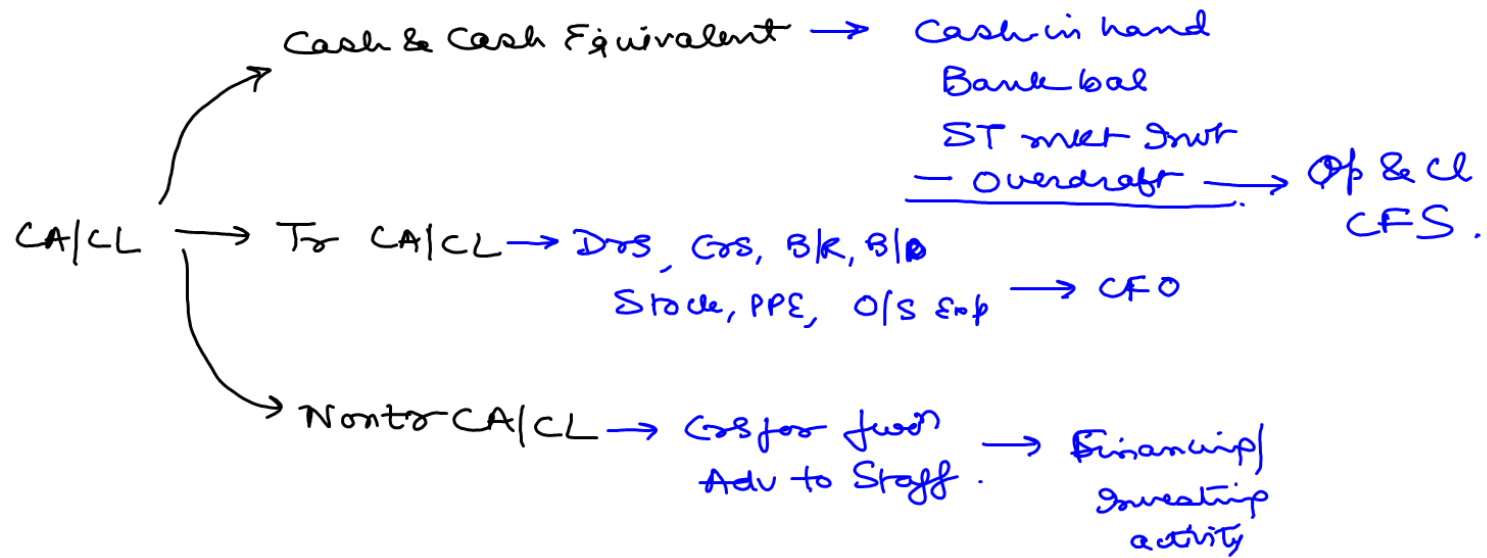 Cash & Cash Equivalent → Cash in hand
Bank bal
ST mkt Invt
— Overdraft → Op & Cl
CFS.
CA/CL → Tr CA/CL → Drs, Crs, B/R, B/P
Stock, PPE, O/S Exp → CFO
Nontr CA/CL → Crs for furn
Adv to Staff. → Financing/
Investing
activity